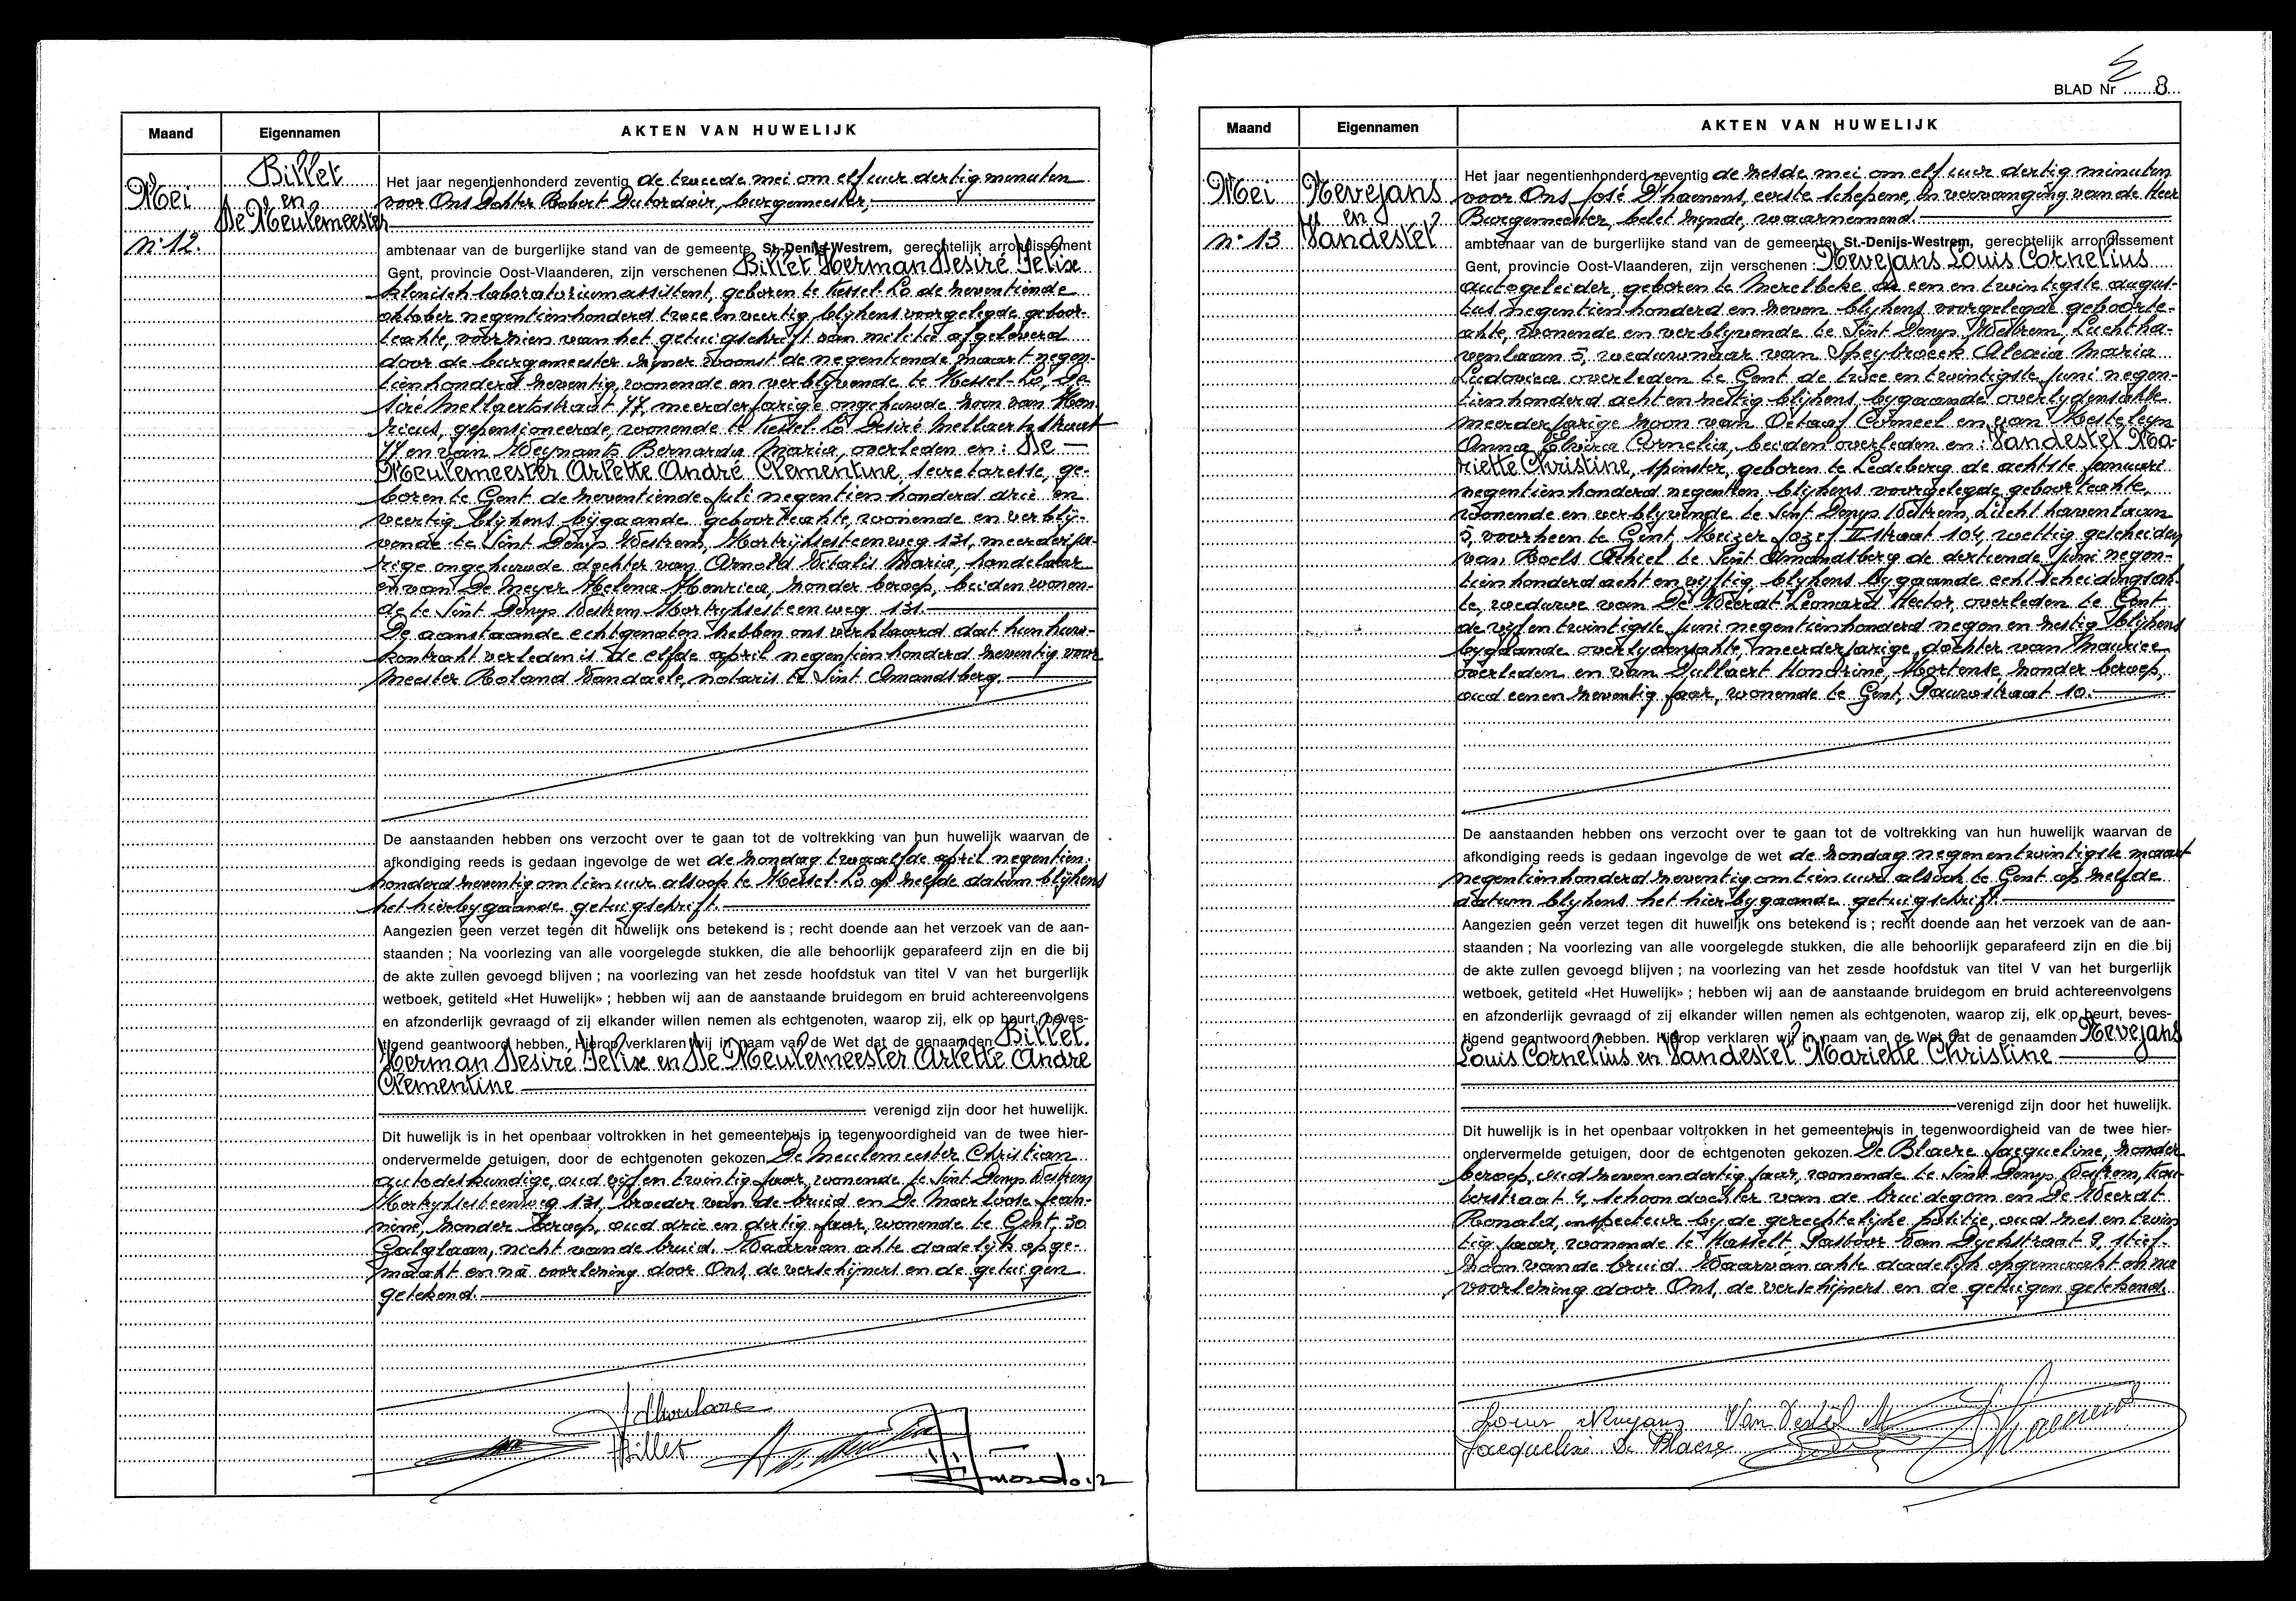 Maand
Eigennamen
AKTEN VAN HUWELIJK
Mei
n° 12.
Billet
en
De Meulemeester
Het jaar negentienhonderd zeventig de tweede mei om elf uur dertig minuten
voor Ons Dokter Robert Dutordoir, burgemeester,
ambtenaar van de burgerlijke stand van de gemeente St.-Denijs-Westrem, gerechtelijk arrondissement
Gent, provincie Oost-Vlaanderen, zijn verschenen Billet Herman Desiré Felix
klinisch laboratoriumassistent, geboren te Kessel-Lo de zeventiende
oktober negentienhonderd twee en veertig blijkens voorgelegde geboor-
teakte, voorzien van het getuigschrift van militie afgeleverd
door de burgemeester zijner woonst de negentiende maart negen-
tienhonderd zeventig, wonende en verblijvende te Kessel-Lo, De-
siré Mellaertsstraat 77, meerderjarige ongehuwde zoon van Hen-
ricus, gepensioneerde, wonende te Kessel-Lo Desiré Mellaertsstraat
77 en van Weynants Bernarda Maria, overleden en: De
Meulemeester Arlette André Clementine, secretaresse, ge-
boren te Gent de zeventiende juli negentienhonderd drie en
veertig blijkens bijgaande geboorteakte, wonende en verblij-
vende te Sint Denys Westrem, Kortrijksesteenweg 131, meerderja-
rige ongehuwde dochter van Arnold Vitalis Maria, handelaar
en van De Meyer Helena Henrica, zonder beroep, beiden wonen-
de te Sint Denys Westrem Kortrijksesteenweg 131.
De aanstaande echtgenoten hebben ons verklaard dat hun huw-
kontrakt verleden is de elfde april negentienhonderd zeventig voor
Meester Roland Vandaele, notaris te Sint Amandsberg.
De aanstaanden hebben ons verzocht over te gaan tot de voltrekking van hun huwelijk waarvan de
afkondiging reeds is gedaan ingevolge de wet de zondag twaalfde april negentien-
honderd zeventig om tien uur alsook te Kessel-Lo op zelfde datum blijkens
het hierbygaande getuigschrift.
Aangezien geen verzet tegen dit huwelijk ons betekend is ; recht doende aan het verzoek van de aan-
staanden ; Na voorlezing van alle voorgelegde stukken, die alle behoorlijk geparafeerd zijn en die bij
de akte zullen gevoegd blijven ; na voorlezing van het zesde hoofdstuk van titel V van het burgerlijk
wetboek, getiteld «Het Huwelijk» ; hebben wij aan de aanstaande bruidegom en bruid achtereenvolgens
en afzonderlijk gevraagd of zij elkander willen nemen als echtgenoten, waarop zij, elk op beurt, beves-
tigend geantwoord hebben. Hierop verklaren wij in naam van de Wet dat de genaamden Billet
Herman Desiré Felix en De Meulemeester Arlette André
Clementine
verenigd zijn door het huwelijk.
Dit huwelijk is in het openbaar voltrokken in het gemeentehuis in tegenwoordigheid van de twee hier-
ondervermelde getuigen, door de echtgenoten gekozen De Meulemeester Christian
autodeskundige, oud vijf en twintig jaar, wonende te Sint Denys Westrem
Kortrijksesteenweg 131, broeder van de bruid en De Moerloose Jean-
nine, zonder beroep, oud drie en dertig jaar, wonende te Gent, 30
Galglaan, nicht van de bruid. Waarvan akte dadelijk opge-
maakt en na voorlezing door Ons, de verschijners en de getuigen
getekend.
Billet
BLAD Nr 8
Maand
Eigennamen
AKTEN VAN HUWELIJK
Mei
n° 13
Nevejans
en
Vandestel
Het jaar negentienhonderd zeventig de zesde mei om elf uur dertig minuten
voor Ons José D'haenens, eerste schepene, in vervanging van de Heer
Burgemeester, belet zynde, waarnemend.
ambtenaar van de burgerlijke stand van de gemeente St.-Denijs-Westrem, gerechtelijk arrondissement
Gent, provincie Oost-Vlaanderen, zijn verschenen : Nevejans Louis Cornelius
autogeleider, geboren te Merelbeke de een en twintigste augus-
tus negentienhonderd en zeven blijkens voorgelegde geboorte-
akte, wonende en verblyvende te Sint Denys Westrem, Luchtha-
venlaan 5, weduwnaar van Speybroeck Alexia Maria
Ludovica overleden te Gent de twee en twintigste juni negen-
tienhonderd acht en zestig blijkens bygaande overlydensakte
meerderjarige zoon van Octaaf Corneel en van Hesteleyn
Anna Elvira Cornelia, beiden overleden en: Vandestel Ma-
riette Christine, spinster, geboren te Ledeberg de achtste januari
negentienhonderd negentien blijkens voorgelegde geboorteakte,
wonende en verblyvende te Sint Denys Westrem, Luchthavenlaan
5, voorheen te Gent Keizer Jozef II straat 104, wettig gescheiden
van Roels Achiel te Sint Amandsberg de dertiende juni negen-
tienhonderd acht en vyftig blijkens bygaande echtscheidingsak-
te, weduwe van De Weerdt Leonard Hector, overleden te Gent
de vijf en twintigste juni negentienhonderd negen en zestig blijkens
bygaande overlydensakte, meerderjarige dochter van Maurice
overleden en van Dullaert Hendrine, Hortense, zonder beroep,
oud een en zeventig jaar, wonende te Gent, Pauwstraat 10.
De aanstaanden hebben ons verzocht over te gaan tot de voltrekking van hun huwelijk waarvan de
afkondiging reeds is gedaan ingevolge de wet de zondag negenentwintigste maart
negentienhonderd zeventig om tien uur alsook te Gent op zelfde
datum blykens het hierbygaande getuigschrift.
Aangezien geen verzet tegen dit huwelijk ons betekend is ; recht doende aan het verzoek van de aan-
staanden ; Na voorlezing van alle voorgelegde stukken, die alle behoorlijk geparafeerd zijn en die bij
de akte zullen gevoegd blijven ; na voorlezing van het zesde hoofdstuk van titel V van het burgerlijk
wetboek, getiteld «Het Huwelijk» ; hebben wij aan de aanstaande bruidegom en bruid achtereenvolgens
en afzonderlijk gevraagd of zij elkander willen nemen als echtgenoten, waarop zij, elk op beurt, beves-
tigend geantwoord hebben. Hierop verklaren wij in naam van de Wet dat de genaamden Nevejans
Louis Cornelius en Vandestel Mariette Christine
verenigd zijn door het huwelijk.
Dit huwelijk is in het openbaar voltrokken in het gemeentehuis in tegenwoordigheid van de twee hier-
ondervermelde getuigen, door de echtgenoten gekozen De Blaere Jacqueline, zonder
beroep, oud zevenendertig jaar, wonende te Sint Denys Westrem,
straat 4, schoondochter van de bruidegom en De Weerdt
Ronald, inspecteur by de gerechtelijke politie, oud zes en twin
tig jaar, wonende te Hasselt, Pastoor Van Dyckstraat 9, stief-
zoon van de bruid. Waarvan akte dadelijk opgemaakt en na
voorlezing door Ons, de verschijners en de getuigen getekend.
Louis Nevejans Van Destel M
Jacqueline De Blaere